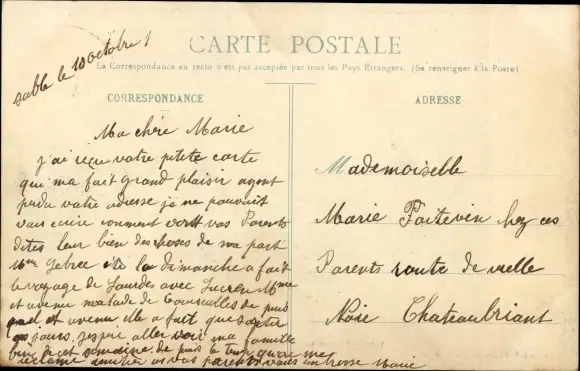 sable le 10 octobre 1
CARTE POSTALE
La Correspondance au recto n'est pas acceptée par tous les Pays Étrangers. (Se renseigner à la Poste)
CORRESPONDANCE
Ma chère Marie
j'ai reçu votre petite carte
qui ma fait grand plaisir ayent
perdu votre adresse je ne pouvait
vous ecrire comment vont vos Parents
dites leur bien des choses de ma part
Mme été la dimanche a fait
le voyage de Lourdes avec Mme
et avenu malade de de puis
quel et avenu elle a fait que
jours j'espri aller voir ma famille
bien semaine de puis le temp quon me
réclame amitier a vos parents
ADRESSE
Mademoiselle
Marie Poitevin chez ces
Parents route de
Noire Chateaubriant